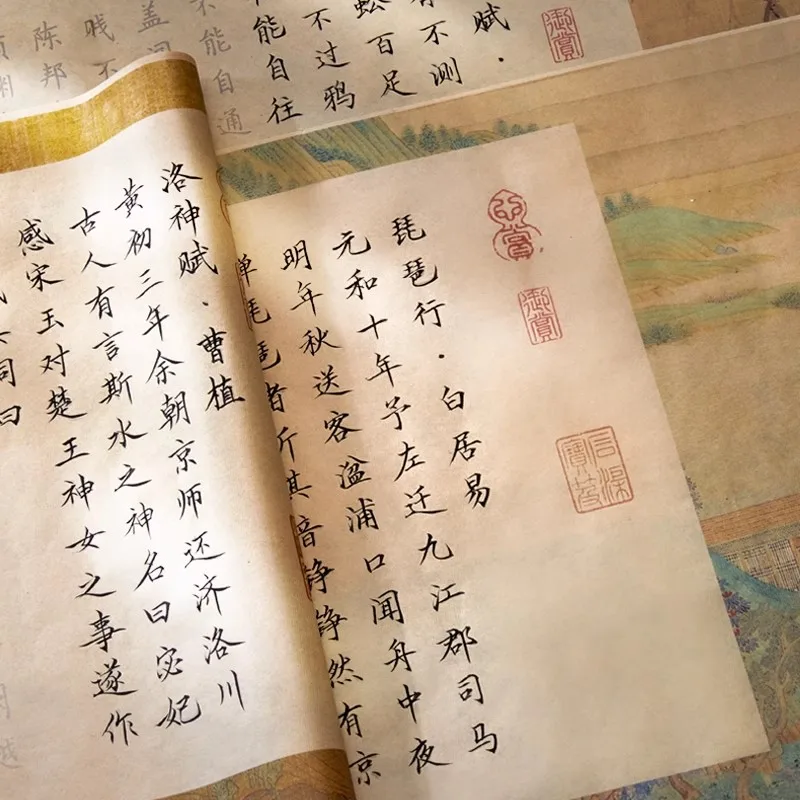 赋·
不测
蚣百足
不过鸦
能自往
不能自通
盖
贱不
陈邦
御赏
琵琶行·白居易
元和十年予左迁九江郡司马
明年秋送客湓浦口闻舟中夜
弹琵琶者听其音铮铮然有京
御赏
洛神赋·曹植
黄初三年余朝京师还济洛川
古人有言斯水之神名曰宓妃
感宋玉对楚王神女之事遂作